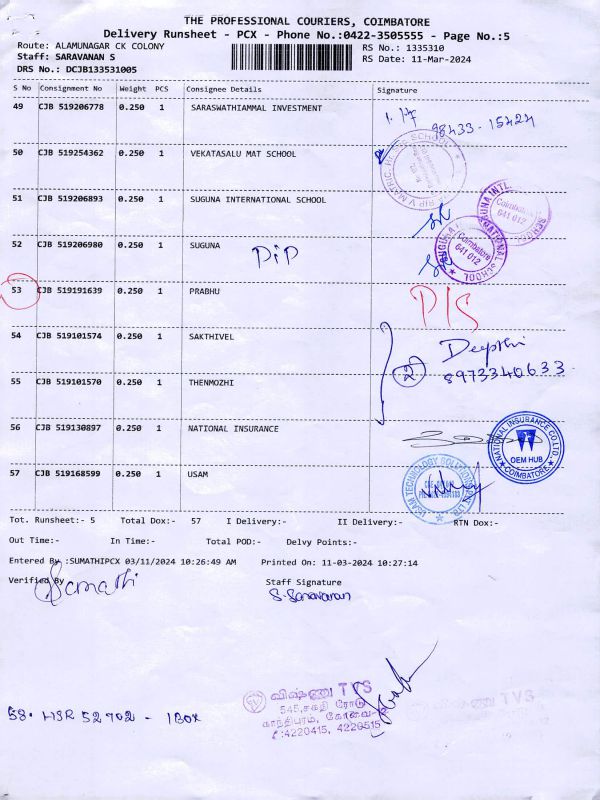 THE PROFESSIONAL COURIERS, COIMBATORE
Delivery Runsheet - PCX - Phone No.:0422-3505555 - Page No.:5
Route: ALAMUNAGAR CK COLONY
RS No.: 1335310
Staff: SARAVANAN S
RS Date: 11-Mar-2024
DRS No.: DCJB133531005
S No Consignment No Weight PCS Consignee Details Signature
49 CJB 519206778 0.250 1 SARASWATHIAMMAL INVESTMENT
98433-15424
50 CJB 519254362 0.250 1 VEKATASALU MAT SCHOOL
51 CJB 519206893 0.250 1 SUGUNA INTERNATIONAL SCHOOL
Coimbatore 641 012
52 CJB 519206980 0.250 1 SUGUNA
PiP
SUGUNA INTERNATIONAL SCHOOL Coimbatore 641 012
53 CJB 519191639 0.250 1 PRABHU
P/S
54 CJB 519101574 0.250 1 SAKTHIVEL
2 Deepthi
8973340633
55 CJB 519101570 0.250 1 THENMOZHI
56 CJB 519130897 0.250 1 NATIONAL INSURANCE
NATIONAL INSURANCE CO.LTD. OEM HUB COIMBATORE
57 CJB 519168599 0.250 1 USAM
Tot. Runsheet:- 5 Total Dox:- 57 I Delivery:- II Delivery:- RTN Dox:-
Out Time:- In Time:- Total POD:- Delvy Points:-
Entered By :SUMATHIPCX 03/11/2024 10:26:49 AM Printed On: 11-03-2024 10:27:14
Verified By
Staff Signature
S. Saravanan
விஷ்ணு TVS
545, சக்தி ரோடு
காந்திபுரம், கோவை-
58. HSR 52702 - 1 BOX
:4220415, 4220515
TVS